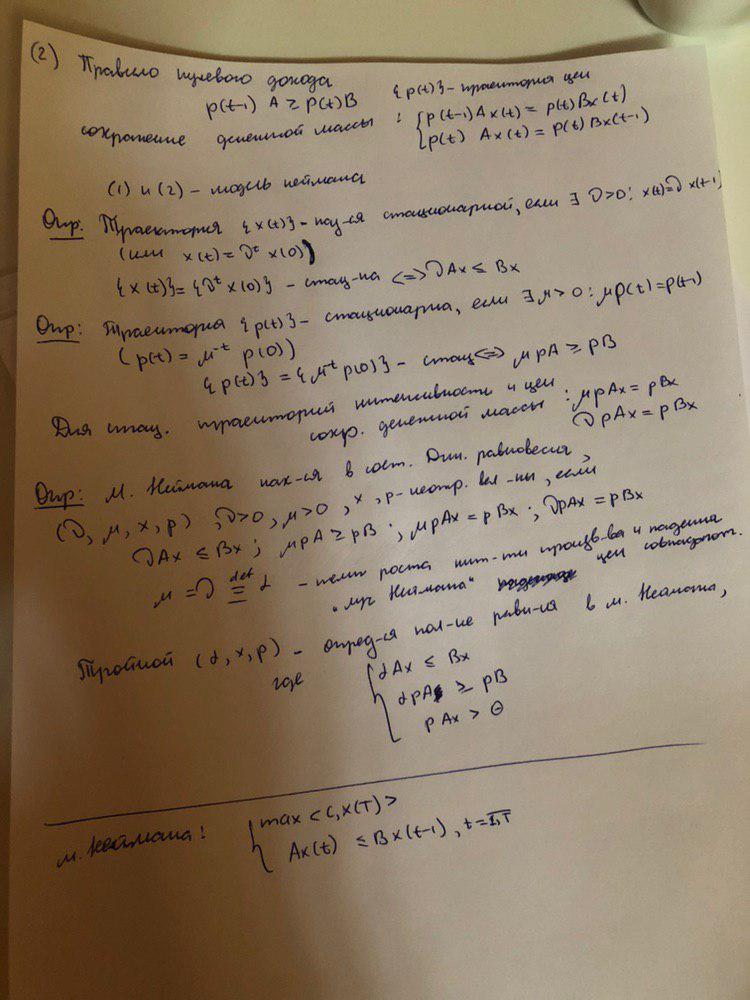 (2) Правило нулевого дохода
p(t-1) A ≥ p(t)B {p(t)} - траектория цен
сохранение денежной массы : { p(t-1)Ax(t) = p(t)Bx(t)
p(t) Ax(t) = p(t) Bx(t-1)
(1) и (2) - модель неймана
Опр: Траектория {x(t)} - наз-ся стационарной, если ∃ ν>0: x(t)=ν x(t-1)
(или x(t) = νᵗ x(0))
{x(t)} = {νᵗ x(0)} - стац-на <=> νAx ≤ Bx
Опр: Траектория {p(t)} - стационарна, если ∃ μ > 0 : μp(t) = p(t-1)
(p(t) = μ⁻ᵗ p(0))
{p(t)} = {μ⁻ᵗ p(0)} - стац <=> μpA ≥ pB
Для стац. траекторий интенсивности и цен
сохр. денежной массы : μpAx = pBx
νpAx = pBx
Опр: М. Неймана нах-ся в сост. Дин. равновесия,
(ν, μ, x, p), ν>0, μ>0, x, p - неотр. вел-ны, если
νAx ≤ Bx ; μpA ≥ pB ; μpAx = pBx ; νpAx = pBx
μ = ν def≡ α - темп роста инт-ти произв-ва и падения
"луч Неймана" цен совпадают.
Тройкой (α, x, p) - опред-ся пол-ие равн-ия в м. Неймана,
где { αAx ≤ Bx
αpA ≥ pB
pAx > 0
м. Неймана: { max <c, x(T)>
Ax(t) ≤ Bx(t-1), t = 1,T